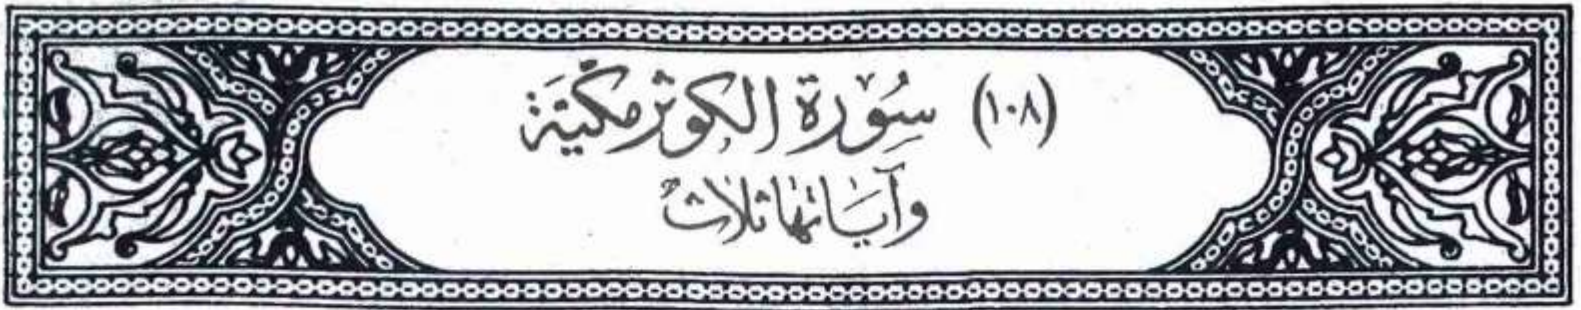 (١٠٨) سُورَة الكوثر مكيّة
وآياتها ثلاث